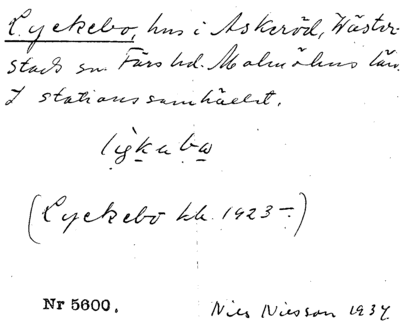 Lyckebo, hus i Askeröd, Wäster-
stads sn. Färs hd. Malmöhus län.
I stationssamhället.
(Lyckebo kk. 1923–)
Nr 5600.
Nils Nilsson 1934